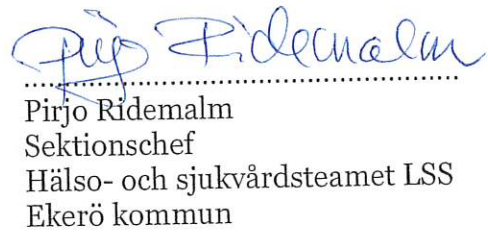 Pirjo Ridemalm
Pirjo Ridemalm
Sektionschef
Hälso- och sjukvårdsteamet LSS
Ekerö kommun